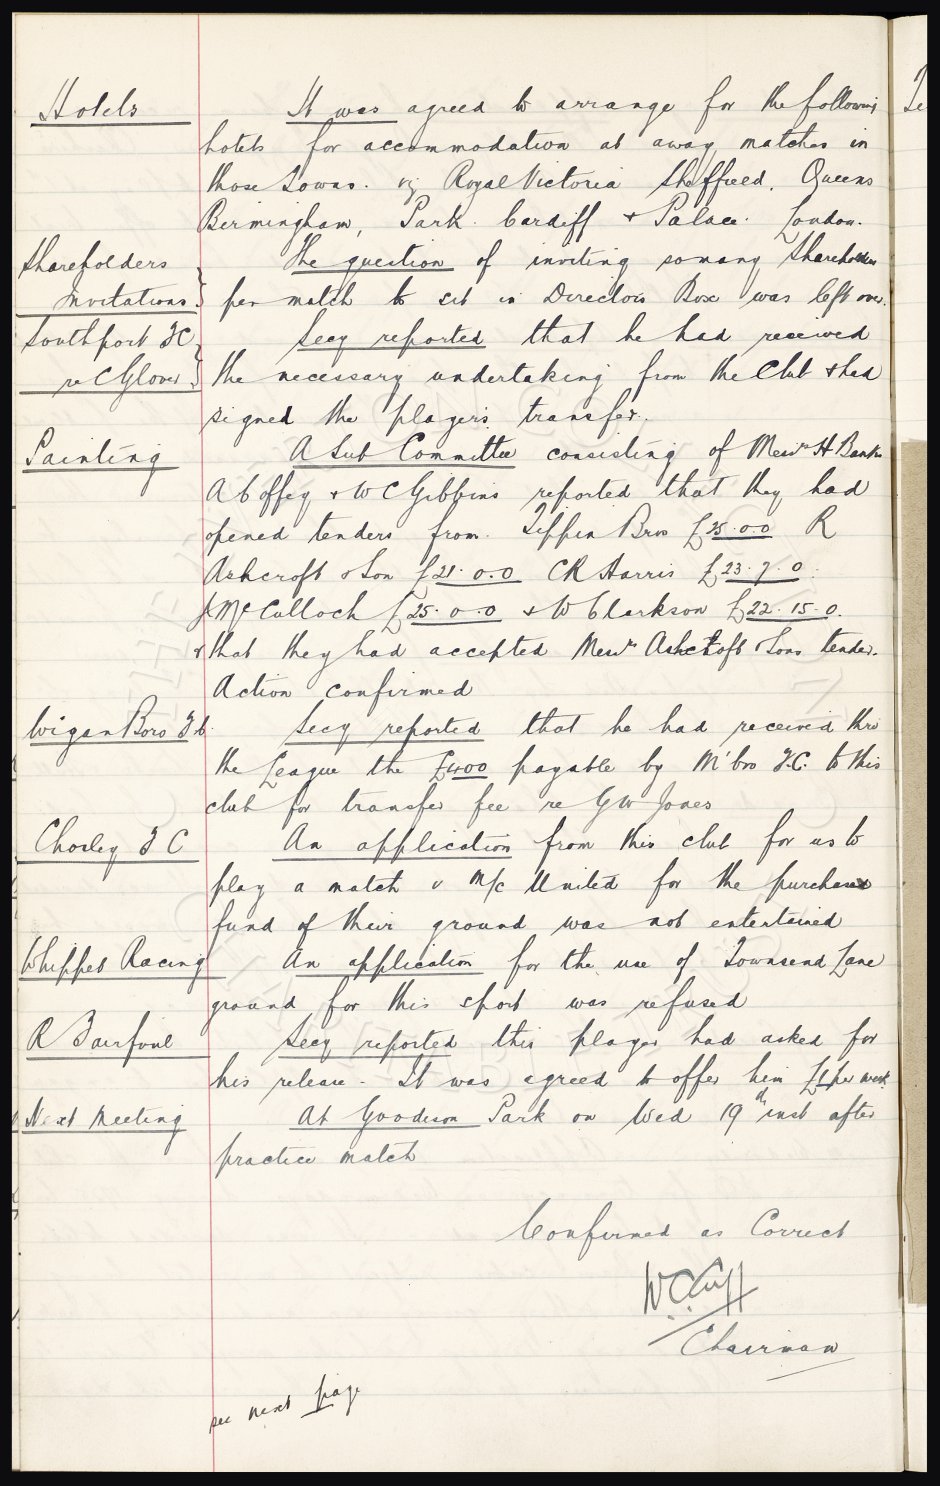 Hotels It was agreed to arrange for the following
hotels for accommodation at away matches in
those towns. viz Royal Victoria Sheffield, Queens
Birmingham, Park Cardiff & Palace London.
Shareholders The question of inviting so many Shareholders
Invitations per match to sit in Directors Box was left over.
Southport FC Secy reported that he had received
re C Glover the necessary undertaking from the Club & had
signed the player's transfer.
Painting A Sub Committee consisting of Messrs H Banks
A Coffey & W C Gibbins reported that they had
opened tenders from Tippin Bros £25.0.0 R
Ashcroft & Son £21.0.0 CR Harris £23.7.0.
J McCulloch £25.0.0 & W Clarkson £22.15.0.
& that they had accepted Messrs Ashcroft & Sons tender.
Action confirmed
Wigan Boro F.C. Secy reported that he had received thro
the League the £400 payable by M'bro F.C. to this
club for transfer fee re G W Jones
Chorley F C An application from this club for us to
play a match v M/c United for the purchase
fund of their ground was not entertained
Whippet Racing An application for the use of Townsend Lane
ground for this sport was refused
R Fairfoul Secy reported this player had asked for
his release. It was agreed to offer him £1 per week
Next Meeting At Goodison Park on Wed 19th inst after
practice match
Confirmed as Correct
W C Cuff
Chairman
see next page